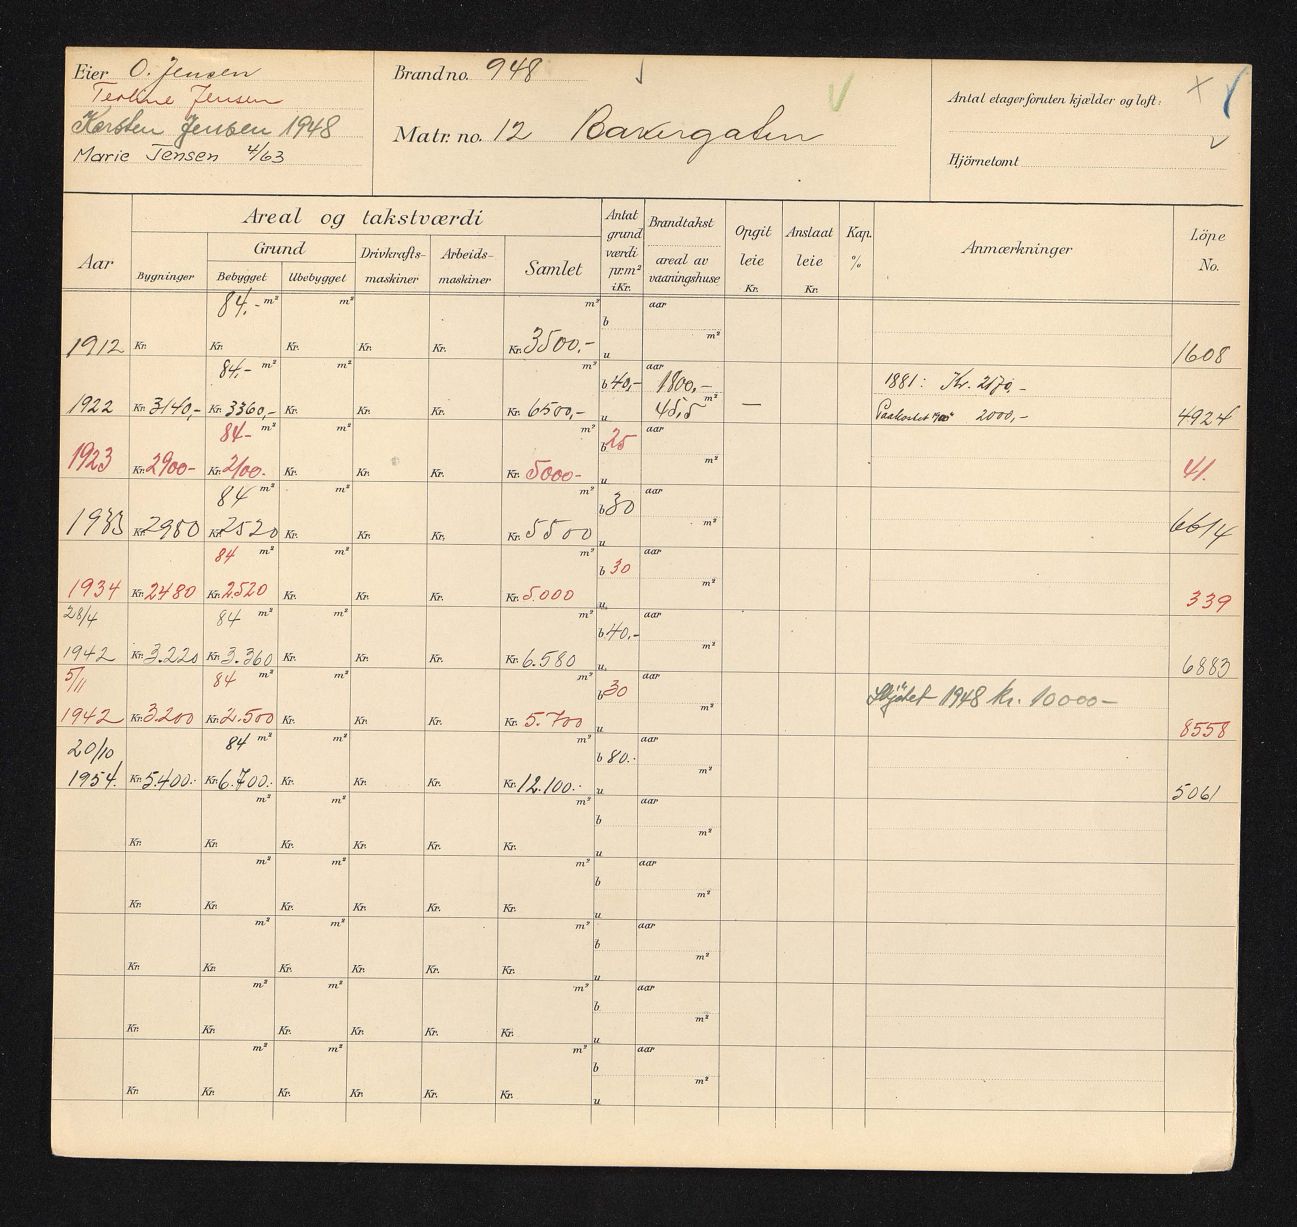 Eier O. Jensen
Jensen
Karsten Jensen 1948
Marie Jensen 4/63
Brand no. 948
Matr. no. 12 Bakergaten
Antal etager foruten kjælder og loft:
Hjörnetomt
Aar
Areal og takstværdi
Bygninger
Grund
Bebygget
Ubebygget
Drivkrafts-
maskiner
Arbeids-
maskiner
Samlet
Antat
grund
værdi
pr. m²
i Kr.
Brandtakst
areal av
vaaningshuse
Opgit
leie
Kr.
Anslaat
leie
Kr.
Kap.
%
Anmærkninger
Löpe
No.
84,- m² m² m² aar
b
m²
1912 Kr. Kr. Kr. Kr. Kr. Kr. 3500,- u 1608
84,- m² m² m² aar
b 40,- 1800,- 1881: Kr. 2170,-
m²
1922 Kr. 3140,- Kr. 3360,- Kr. Kr. Kr. Kr. 6500,- u 45,5 — 2000,- 4924
84- m² m² m² aar
b 25
m²
1923 Kr. 2900- Kr. 2100- Kr. Kr. Kr. Kr. 5000- u 41.
84 m² m² m² aar
b 30
m²
1933 Kr. 2980 Kr. 2520 Kr. Kr. Kr. Kr. 5500 u 6614
84 m² m² m² aar
b 30
m²
1934 Kr. 2480 Kr. 2520 Kr. Kr. Kr. Kr. 5.000 u. 339
28/4 84 m² m² m² aar
b 40,-
m²
1942 Kr. 3.220 Kr. 3.360 Kr. Kr. Kr. Kr. 6.580 u. 6883
5/11 84 m² m² m² aar
b 30 Skjötet 1948 kr. 10000-
m²
1942 Kr. 3.200 Kr. 2.500 Kr. Kr. Kr. Kr. 5.700 u 8558
20/10 84 m² m² m² aar
b 80.-
m²
1954. Kr. 5.400.- Kr. 6.700.- Kr. Kr. Kr. Kr. 12.100.- u 5061
m² m² m² aar
b
m²
Kr. Kr. Kr. Kr. Kr. Kr. u
m² m² m² aar
b
m²
Kr. Kr. Kr. Kr. Kr. Kr. u
m² m² m² aar
b
m²
Kr. Kr. Kr. Kr. Kr. Kr. u
m² m² m² aar
b
m²
Kr. Kr. Kr. Kr. Kr. Kr. u
m² m² m² aar
b
m²
Kr. Kr. Kr. Kr. Kr. Kr. u